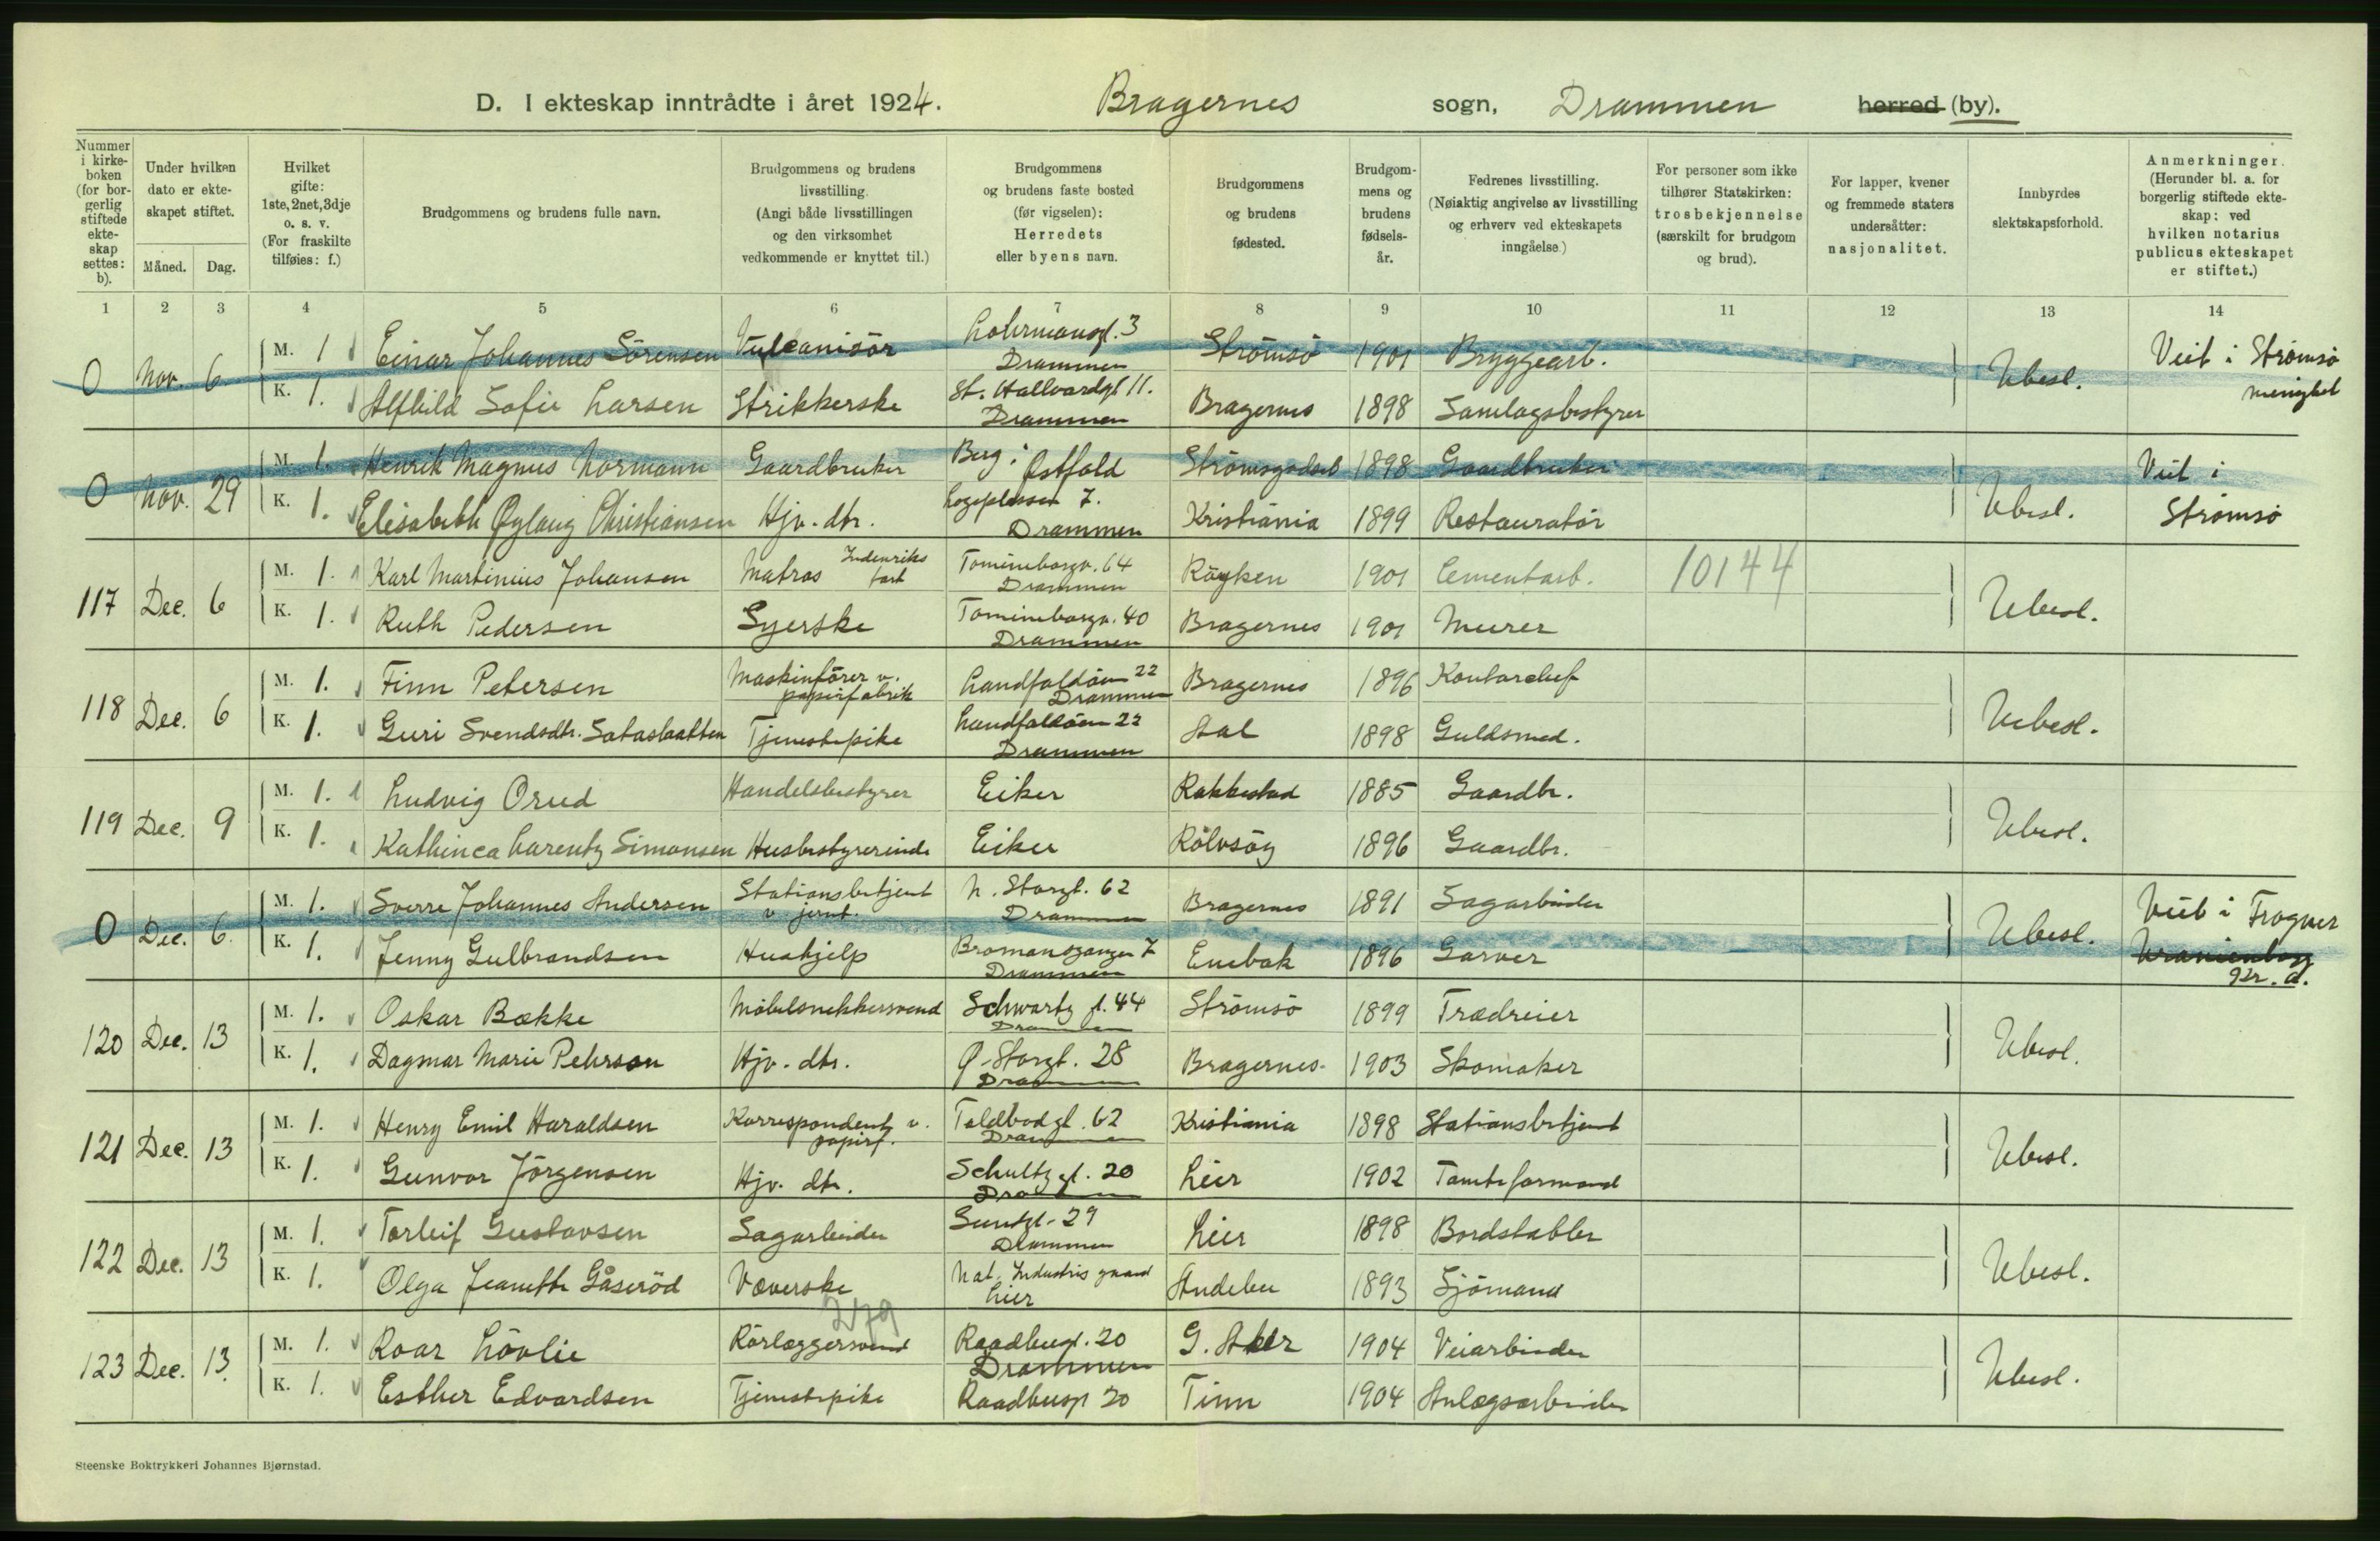 D. I ekteskap inntrådte i året 1924. Bragernes sogn, Drammen herred (by).
Nummer i kirkeboken (for borgerlig stiftede ekteskap settes: b).
Under hvilken dato er ekteskapet stiftet.
Måned. Dag.
Hvilket gifte: 1ste, 2net, 3dje o. s. v. (For fraskilte tilføies: f.)
Brudgommens og brudens fulle navn.
Brudgommens og brudens livsstilling. (Angi både livsstillingen og den virksomhet vedkommende er knyttet til.)
Brudgommens og brudens faste bosted (før vigselen): Herredets eller byens navn.
Brudgommens og brudens fødested.
Brudgommens og brudens fødselsår.
Fedrenes livsstilling. (Nøiaktig angivelse av livsstilling og erhverv ved ekteskapets inngåelse.)
For personer som ikke tilhører Statskirken: trosbekjennelse (særskilt for brudgom og brud).
For lapper, kvener og fremmede staters undersåtter: nasjonalitet.
Innbyrdes slektskapsforhold.
Anmerkninger. (Herunder bl. a. for borgerlig stiftede ekteskap: ved hvilken notarius publicus ekteskapet er stiftet.)
1 2 3 4 5 6 7 8 9 10 11 12 13 14
0 Nov. 6 M. 1 Einar Johannes Sörensen Vulcanisör 3 Drammen Strömsö 1901 Bryggearb. Ubesl. Viet i Strømsö menighet
K. 1. Alfhild Sofie Larsen Strikkerske St. Hallvardgt 11. Drammen Bragernes 1898 Samlagsbestyrer
0 Nov. 29 M. 1. Henrik Magnus Normann Gaardbruker Berg i Østfold Strömsgodset 1898 Gaardbruker Ubesl. Viet i Strømsö
K. 1. Elisabeth Øylaug Christiansen Hjv. dtr. Logeplassen 7. Drammen Kristiania 1899 Restauratör
117 Dec. 6 M. 1. Karl Martinius Johansen Matros Indenriks fart Tomineborgv. 64 Drammen Röyken 1901 Cementarb. 10144 Ubesl.
K. 1. Ruth Pedersen Syerske Tomineborgv. 40 Drammen Bragernes 1901 Murer
118 Dec. 6 M. 1. Finn Petersen Maskinförer v. papirfabrik Landfaldöen 22 Drammen Bragernes 1896 Kontorchef Ubesl.
K. 1. Guri Svendsdtr. Sataslaatten Tjenestepike Landfaldöen 22 Drammen Aal 1898 Guldsmed.
119 Dec. 9 M. 1. Ludvig Orud Handelsbestyrer Eiker Rakkestad 1885 Gaardbr. Ubesl.
K. 1. Kathinca Larentz Simonsen Husbestyrerinde Eiker Rölvsöy 1896 Gaardbr.
0 Dec. 6. M. 1. Sverre Johannes Andersen Stationsbetjent v jernb. N. Storgt. 62 Drammen Bragernes 1891 Sagarbeider Ubesl. Viet i Frogner Uranienborg Kr. a.
K. 1. Jenny Gulbrandsen Hushjelp Bromansgangen 7 Drammen Enebak 1896 Garver
120 Dec. 13 M. 1. Oskar Bække Möbelsnekkersvend Schwartz gt. 44 Drammen Strömsö 1899 Trædreier Ubesl.
K. 1. Dagmar Marie Pehrson Hjv. dtr. Ø. Storgt. 28 Drammen Bragernes 1903 Skomaker
121 Dec. 13 M. 1. Henry Emil Haraldsen Korrespondent v. papirf. Toldbodgt. 62 Drammen Kristiania 1898 Stationsbetjent Ubesl.
K. 1. Gunvor Jörgensen Hjv. dtr. Schultz gt. 20 Drammen Lier 1902 Tomteformand
122 Dec. 13 M. 1. Torleif Gustavsen Sagarbeider Sundgt. 29 Drammen Lier 1898 Bordstabler Ubesl.
K. 1. Olga Jeanette Gåseröd Væverske Nat. Industris gaard Lier Andebu 1893 Sjömand
123 Dec. 13. M. 1. Roar Lövlie Rörlæggersvend Raadhusgt. 20 Drammen G. Aker 1904 Veiarbeider Ubesl.
K. 1. Esther Edvardsen Tjenestepike Raadhusgt 20 Tinn 1904 Anlægsarbeider
Steenske Boktrykkeri Johannes Bjørnstad.